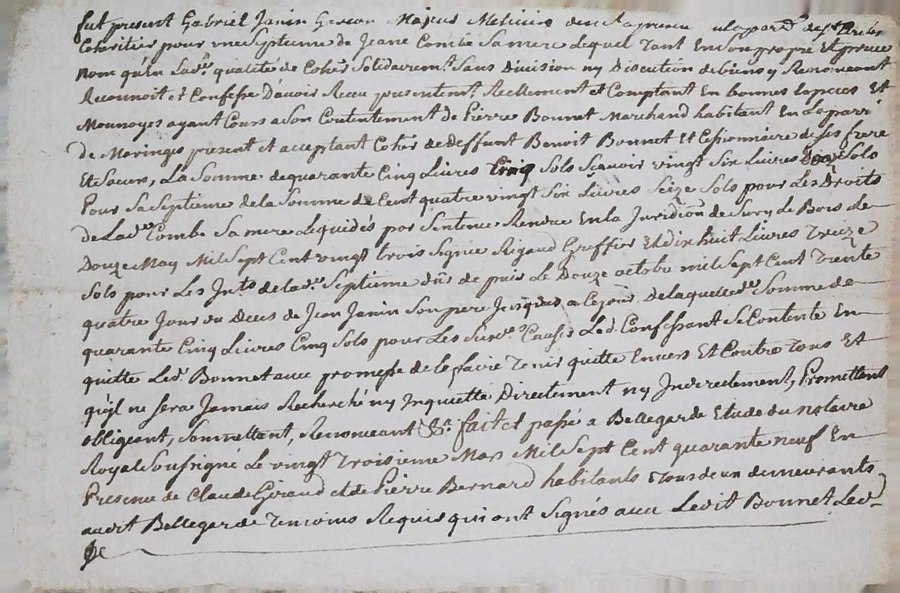 fut present Gabriel Janin Garcon Majeur
Coheritier pour une Septieme de Jeane Combe Sa mere Lequel Tant En Son propre Et
nom qu'En Lad.e qualité de Coher Solidairem.t Sans Division ny Discution de biens y Renonceant
Reconnoit et Confesse D'avoir Receu presentem.t Reellement et Comptant En bonnes Especes Et
Monnoyes ayant Cours a Son Contentement de Pierre Bonnet Marchand habitant En La parr.
de Moringe present et acceptant Coher de deffunt Benoit Bonnet Et Cessionnaire de Ses frere
Et Soeurs, La Somme de quarante Cinq Livres Cinq Sols Scavoir vingt Six Livres Sols
Pour Sa Septieme de la Somme de Cent quatre vingt Six Livres Seize Sols pour Les Droits
de Lad.e Combe Sa mere Liquidés par Sentence Rendue En la Juridi.on de Sury Le Bois Le
Douze May Mil Sept Cent vingt trois Signée Rigaud Greffier Et dix huit Livres Treize
Sols pour Les Int.s de lad.e Septieme de puis Le Douze octobre mil Sept Cent Trente
quatre Jour du Deces de Jean Janin Son pere Jusques a Ce Jour, De laquelle Somme de
quarante Cinq Livres Cinq Sols pour Les Causes Led. Confessant Se Contente En
quitte Led. Bonnet avec promesse de le faire Tenir quitte Envers Et Contre Tous Et
qu'il ne Sera Jamais Recherché ny Inquietté Directement ny Indirectement, Promettant
obligeant, Soumettant, Renonceant &c. fait et passé a Bellegarde Etude du notaire
Royal Soussigné Le vingt Troisieme Mars Mil Sept Cent quarante neuf En
Presence de Claude Giraud et de Pierre Bernard habitants Tous deux demeurants
audit Bellegarde Temoins Requis qui ont Signés avec Ledit Bonnet Led.